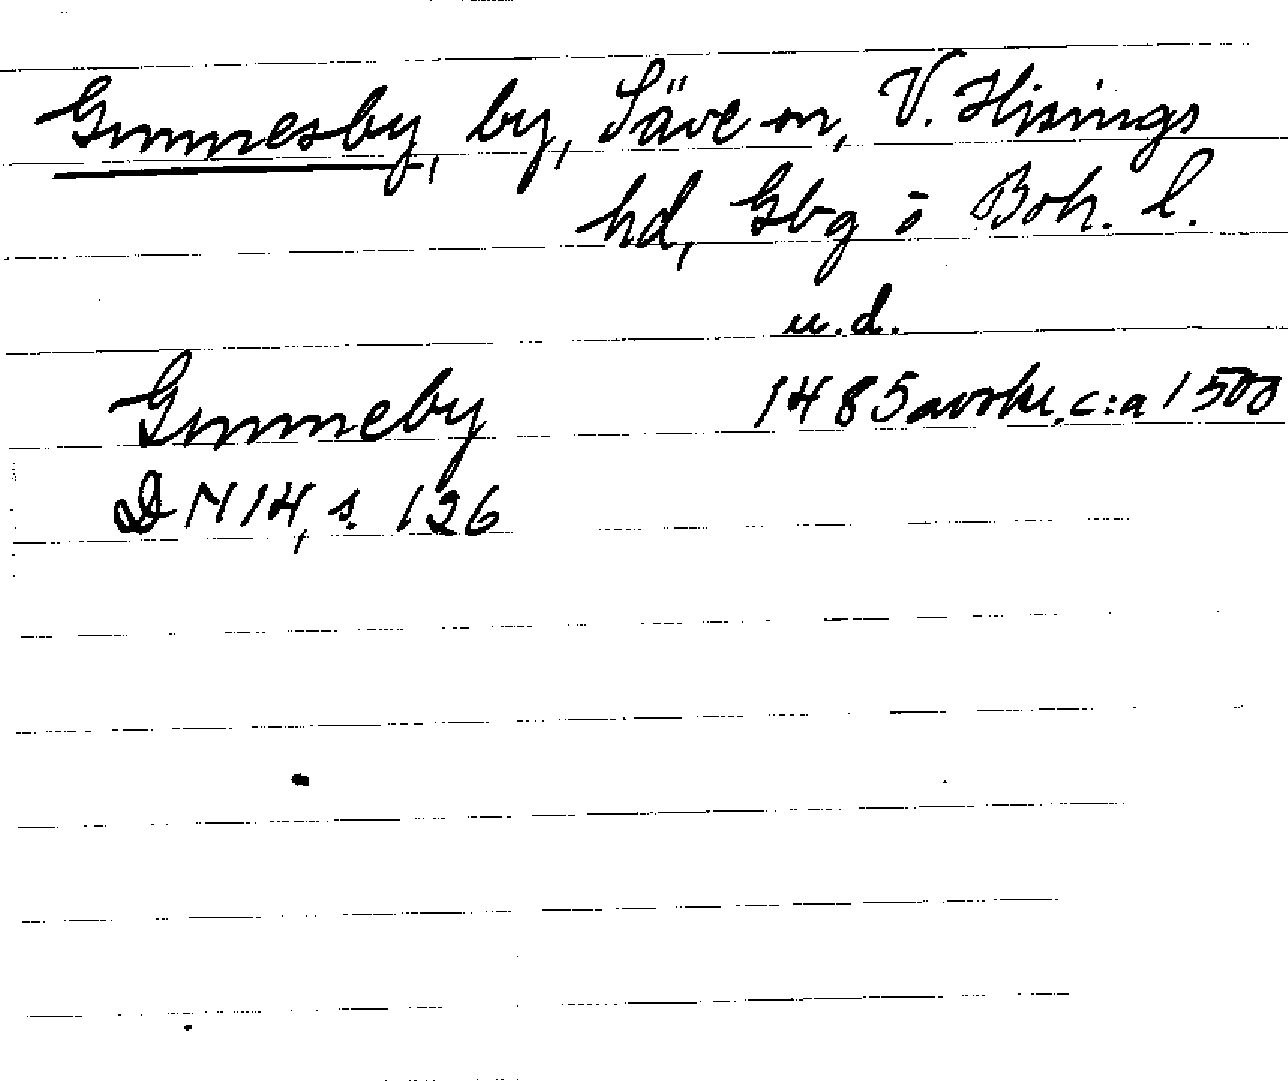 Gunnesby, by, Säve sn, V. Hisings
hd, Gbg o Boh. l.
u.d.
Gunneby 1485 avskr. c:a 1500
DN 14, s. 126